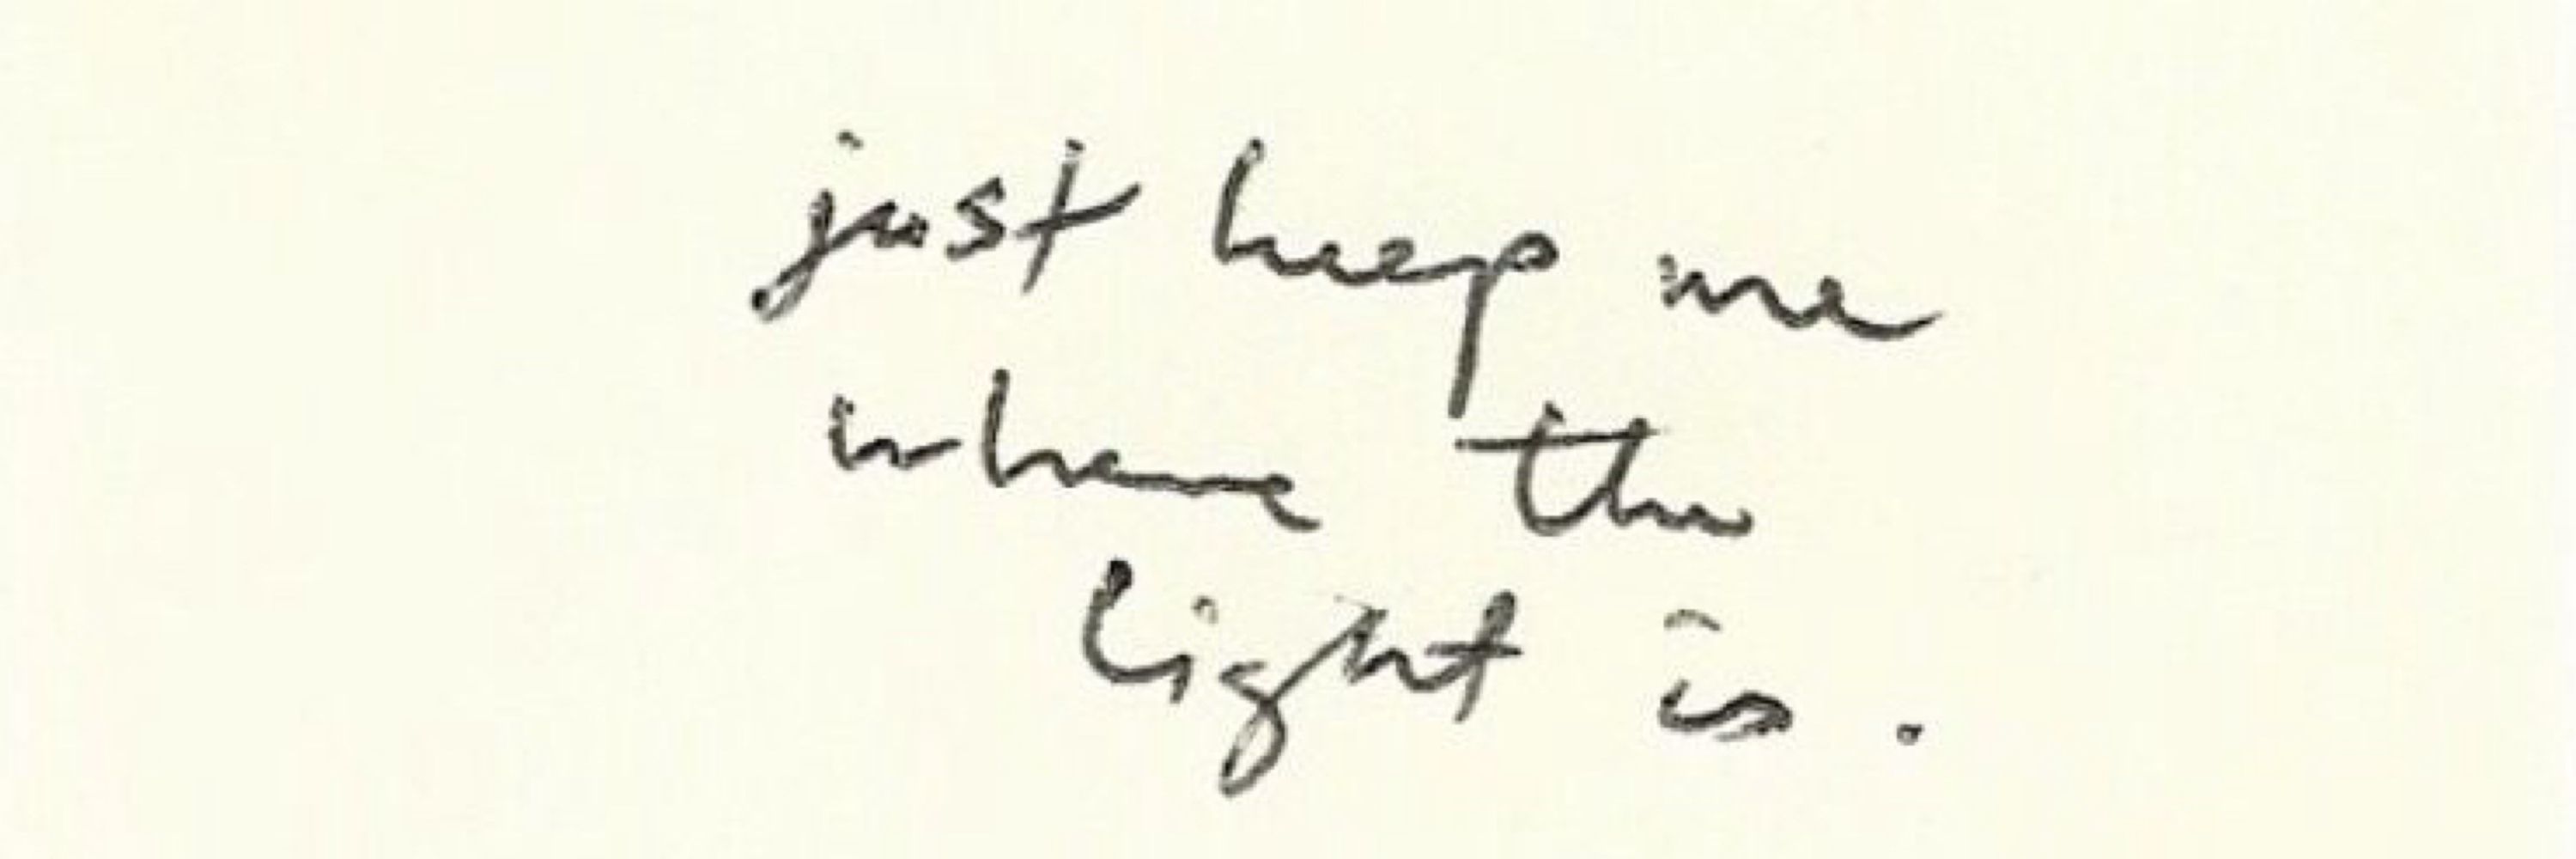 just keep me
where the
light is.